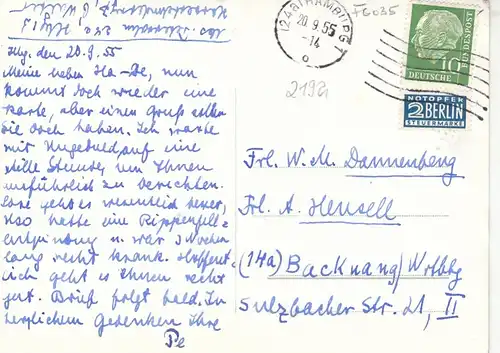 Hbg. den 20.9.55
Meine lieben Ha-De, nun
kommt doch wieder eine
Karte, aber einen Gruß sollen
Sie doch haben. Ich warte
mit Ungeduld auf eine
stille Stunde, um Ihnen
ausführlich zu berichten.
geht es wesentlich besser,
hatte eine Rippenfell=
entzündung u. war 3 Wochen
lang recht krank. Hoffent-
lich geht es Ihnen recht
gut. Brief folgt bald. In
herzlichem Gedenken Ihre
Pe
(24a) HAMBURG 1
20.9.55
-14
o
F6035
219a
10
DEUTSCHE
BUNDESPOST
NOTOPFER
2 BERLIN
STEUERMARKE
Frl. W. M. Dannenberg
Frl. A. Hensell
(14a) Backnang/Wttbg
Sulzbacher Str. 21, II